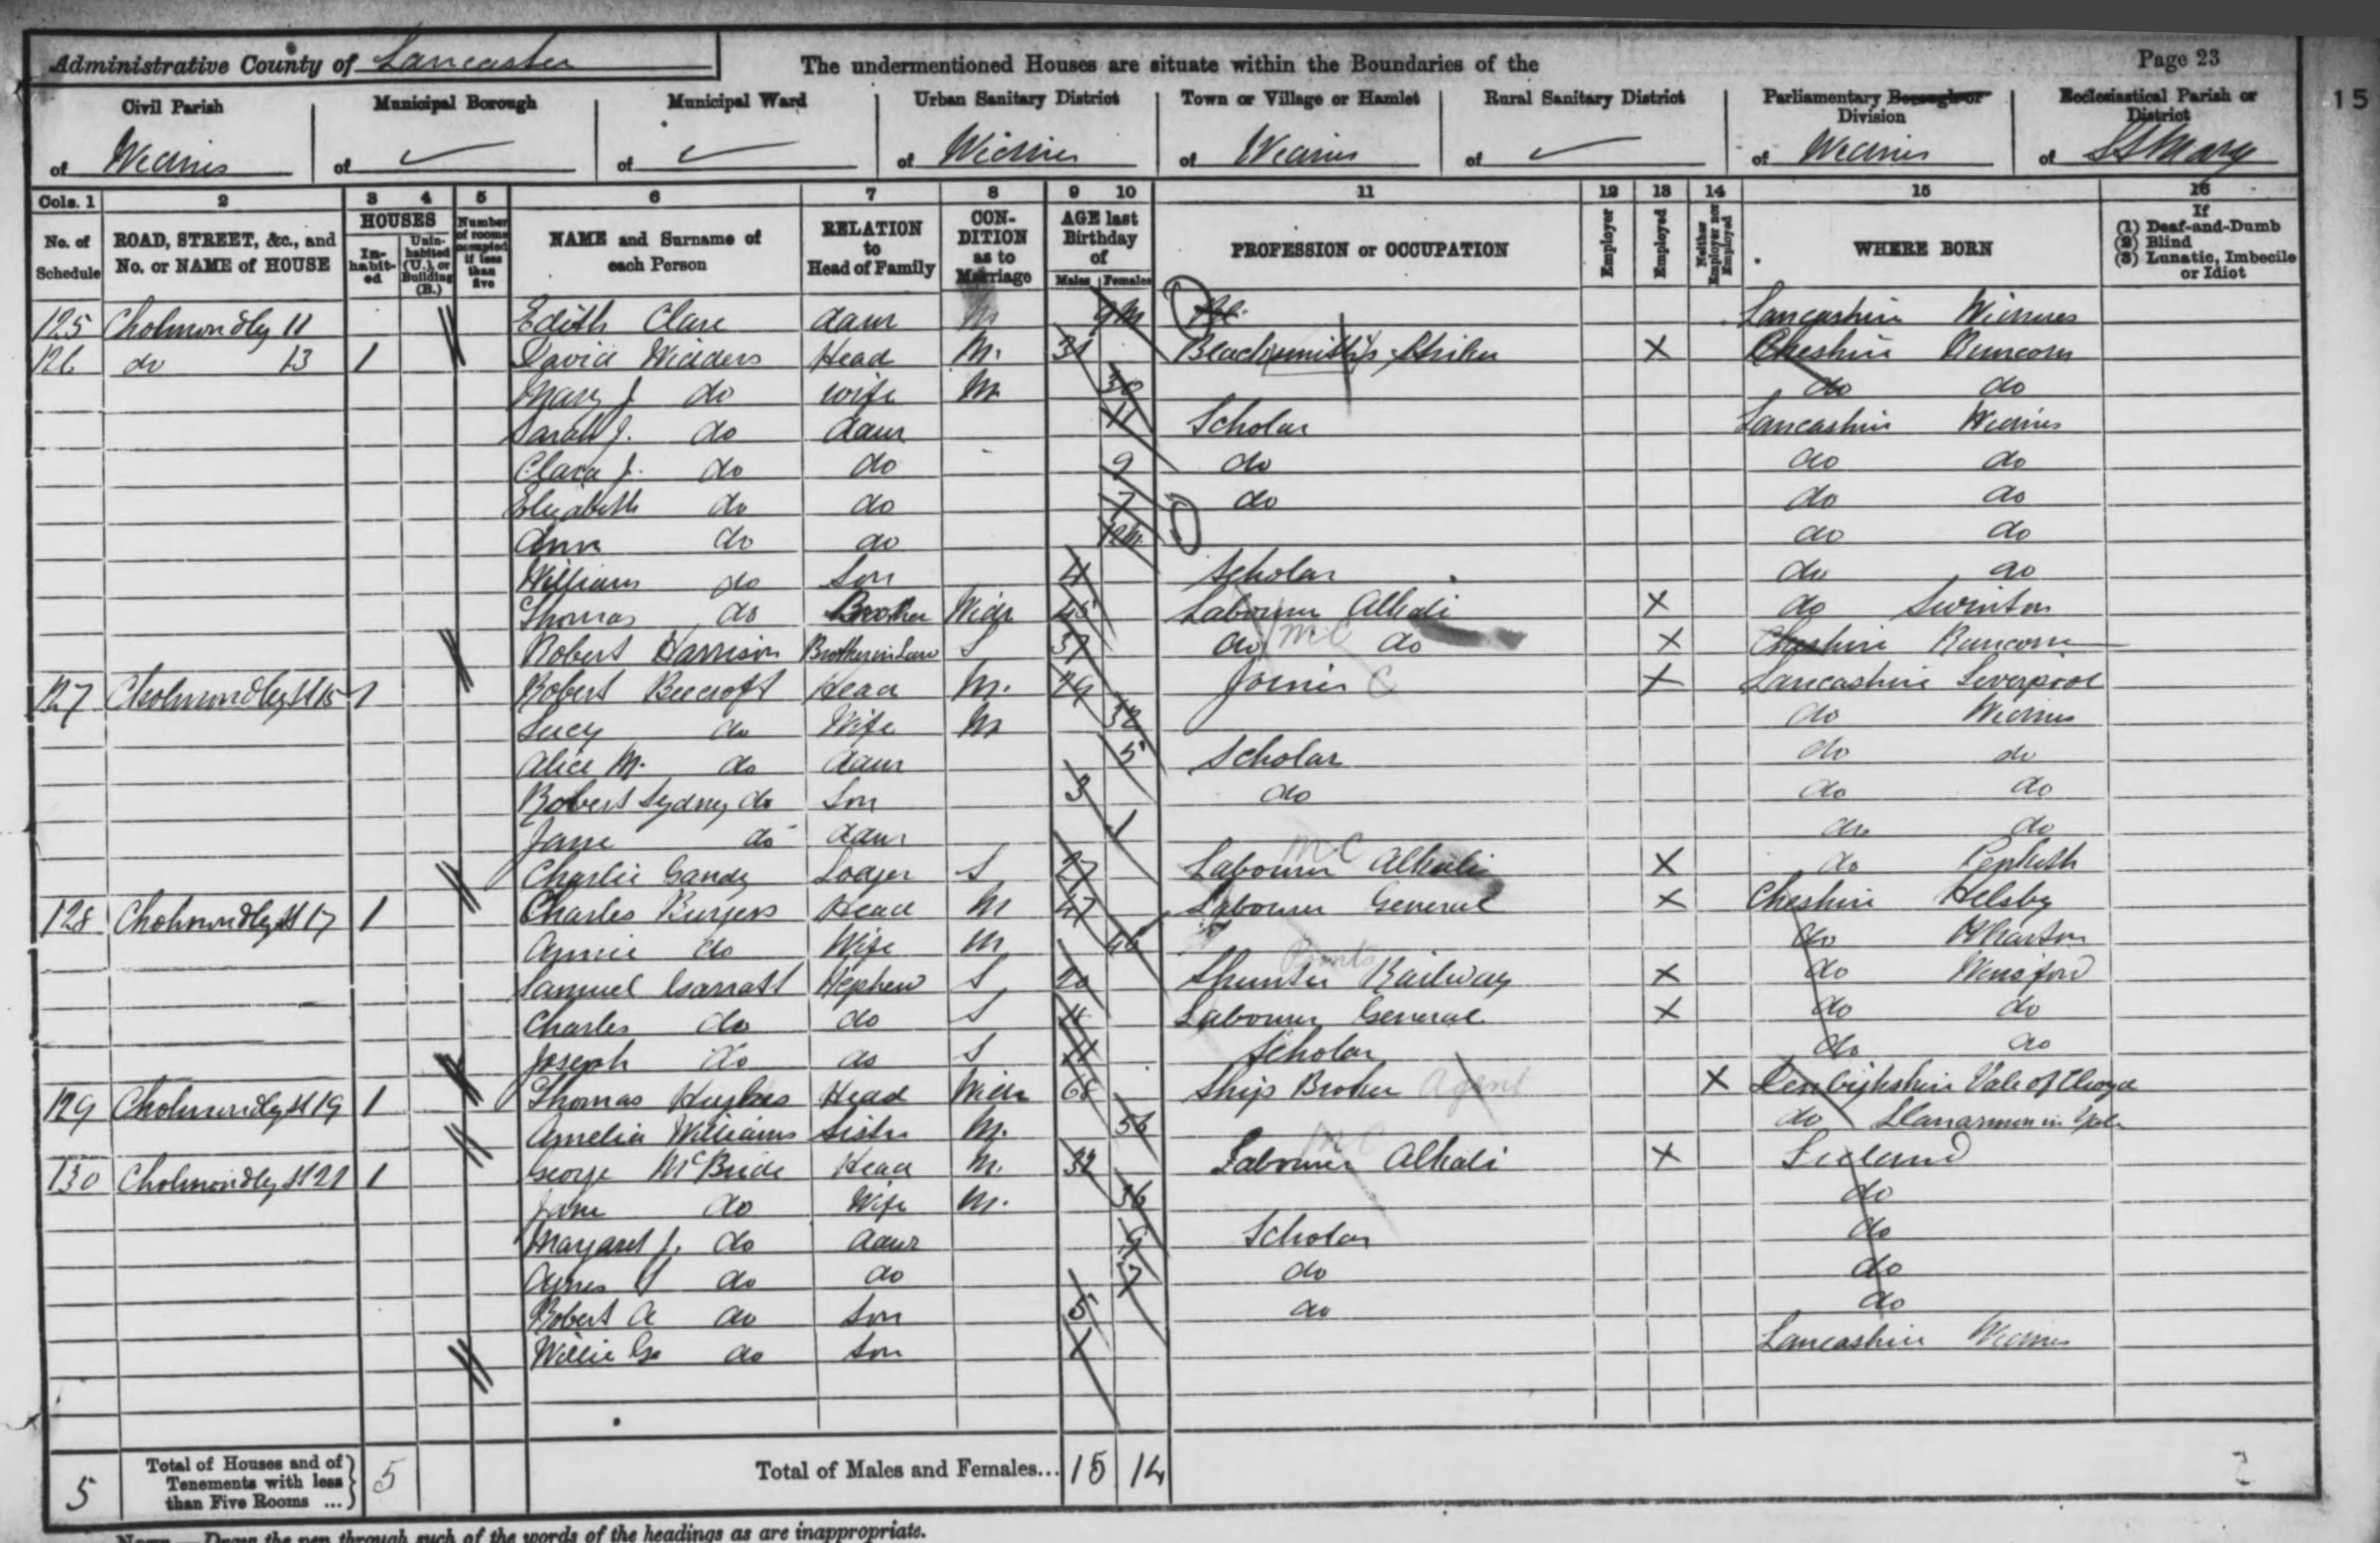 Administrative County of Lancaster
The undermentioned Houses are situate within the Boundaries of the
Page 23
15
Civil Parish Municipal Borough Municipal Ward Urban Sanitary District Town or Village or Hamlet Rural Sanitary District Parliamentary Borough or Division Ecclesiastical Parish or District
of Widnes of ✓ of ✓ of Widnes of Widnes of ✓ of Widnes of St Mary
Cols. 1 2 3 4 5 6 7 8 9 10 11 12 13 14 15 16
No. of Schedule ROAD, STREET, &c., and No. or NAME of HOUSE HOUSES Inhabited Uninhabited (U.), or Building (B.) Number of rooms occupied if less than five NAME and Surname of each Person RELATION to Head of Family CONDITION as to Marriage AGE last Birthday of Males Females PROFESSION or OCCUPATION Employer Employed Neither Employer nor Employed WHERE BORN If (1) Deaf-and-Dumb (2) Blind (3) Lunatic, Imbecile or Idiot
125 Cholmondly 11 Edith Clare daur 9m Lancashire Widnes
126 do 13 1 David Widders Head M. 31 Blacksmith's Striker X Cheshire Runcorn
Mary J do wife M 30 do do
Sarah J. do daur 11 Scholar Lancashire Widnes
Clara J. do do 9 do do do
Elizabeth do do 7 do do do
Ann do do do do
William do Son 4 Scholar do do
Thomas do Brother Widr 45 Labourer Alkali X do Swinton
Robert Harrison Brother in Law S 37 do do X Cheshire Runcorn
127 Cholmondly St 15 1 Robert Beecroft Head M. 29 Joiner C X Lancashire Liverpool
Lucy do Wife M 32 do Widnes
Alice M. do daur 5 Scholar do do
Robert Sydney do Son 3 do do do
Jane do daur 1 do do
Charlie Gandy Lodger S 27 Labourer Alkali X do Penketh
128 Cholmondly St 17 1 Charles Burgess Head M 47 Labourer General X Cheshire Helsby
Annie do Wife M 46 do Wharton
Samuel Garratt Nephew S 20 Shunter Railway X do Winsford
Charles do do S Labourer General X do do
Joseph do do S 11 Scholar do do
129 Cholmondly St 19 1 Thomas Hughes Head Widr 68 Ship Broker Agent X Denbighshire Vale of Clwyd
Amelia Williams Sister M. 56 do Llanarmon in Yale
130 Cholmondly St 21 1 George McBride Head M. 32 Labourer Alkali X Ireland
Jane do Wife M. 36 do
Margaret J. do daur 9 Scholar do
Agnes do do 7 do do
Robert A do Son 5 do do
Willie Go do Son 1 Lancashire Widnes
5 Total of Houses and of Tenements with less than Five Rooms ... 5 Total of Males and Females... 15 14
NOTE.—Draw the pen through such of the words of the headings as are inappropriate.